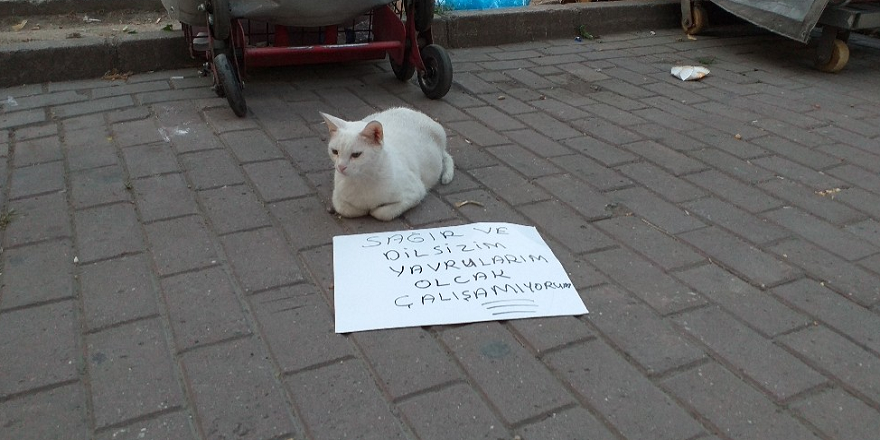 SAĞIR VE
DiLSiZiM
YAVRULARIM
OLCAK
ÇALIŞAMIYORUM